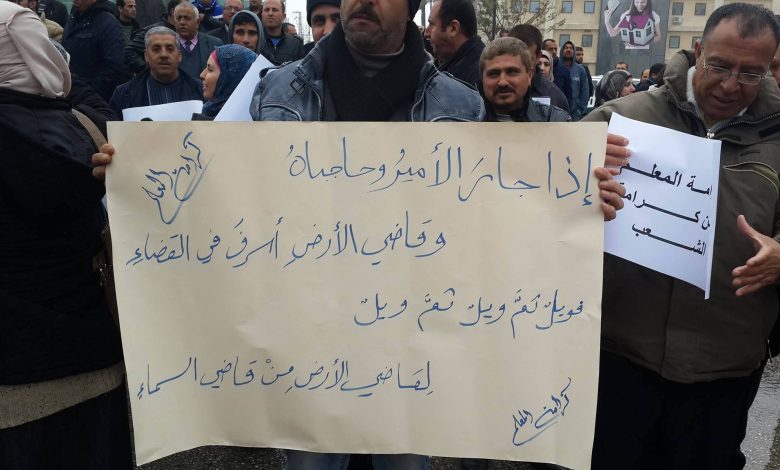 إذا جارَ الأميرُ وحاجباهُ
كرامة المعلم
وقاضي الأرضِ أسرفَ في القضاءِ
فويلٌ ثمَّ ويلٌ ثمَّ ويلٌ
لقاضي الأرضِ مِنْ قاضي السماءِ
كرامة المعلم
امة المعلم
من كرامة
الشعب